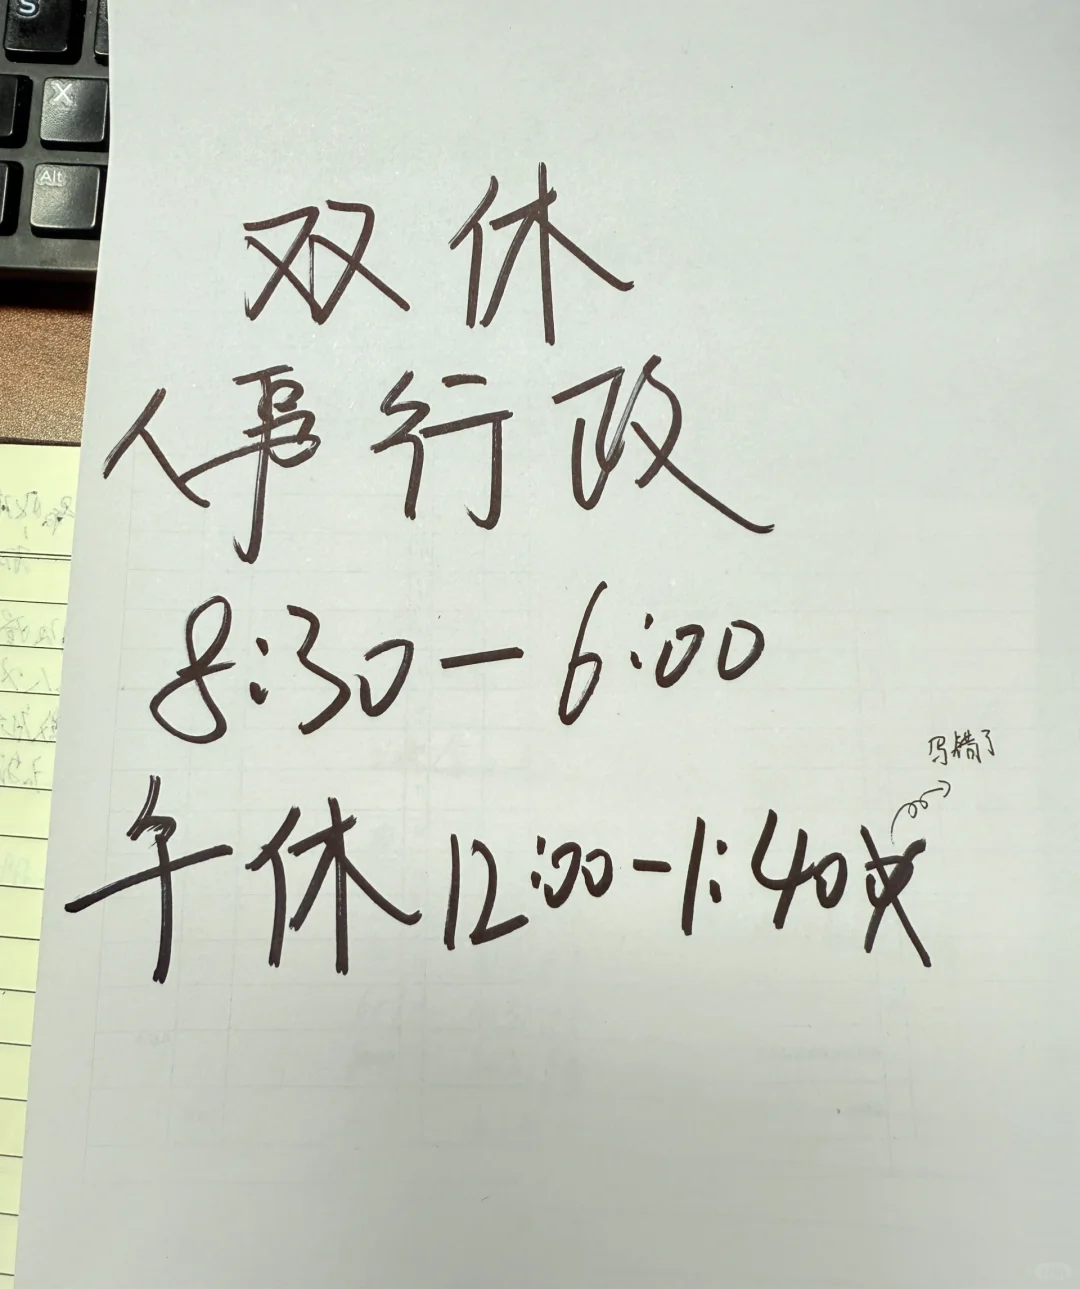 S
X
Alt
双休
人事行政
8:30-6:00
写错了
午休12:00-1:40